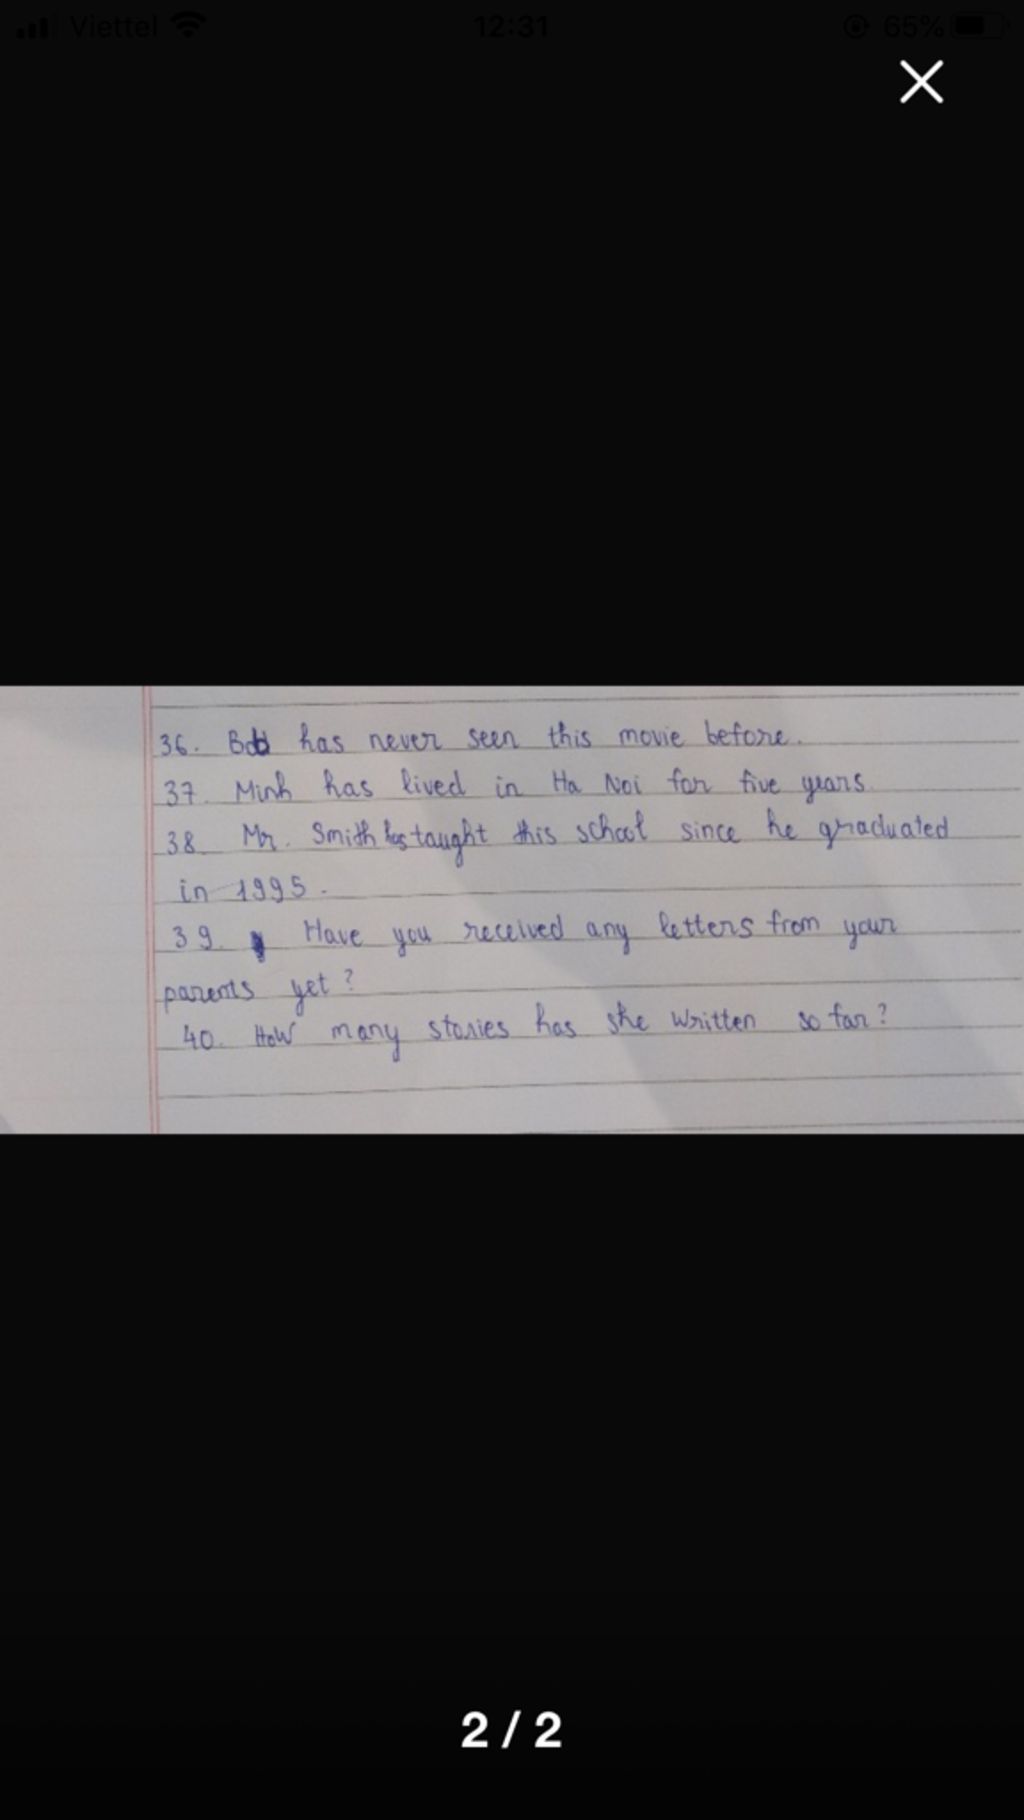 Viettel 12:31 65%
36. Bob has never seen this movie before.
37. Minh has lived in Ha Noi for five years.
38. Mr. Smith has taught this school since he graduated
in 1995.
39. Have you received any letters from your
parents yet?
40. How many stories has she written so far?
2 / 2